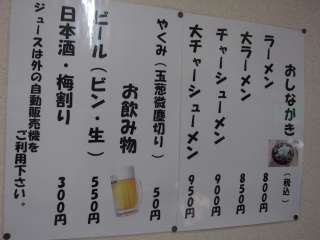 おしながき
(税込)
ラーメン 800円
大ラーメン 850円
チャーシューメン 900円
大チャーシューメン 950円
やくみ(玉葱微塵切り) 50円
お飲み物
ビール(ビン・生) 550円
日本酒・梅割り 300円
ジュースは外の自動販売機を
ご利用下さい。